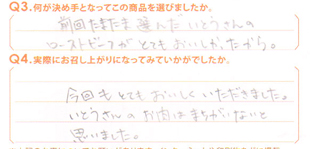 Q3.何が決め手となってこの商品を選びましたか。
前回たまたま選んだいとうさんの
ローストビーフがとてもおいしかったから。
Q4.実際にお召し上がりになってみていかがでしたか。
今回もとてもおいしくいただきました。
いとうさんのお肉はまちがいないと
思いました。